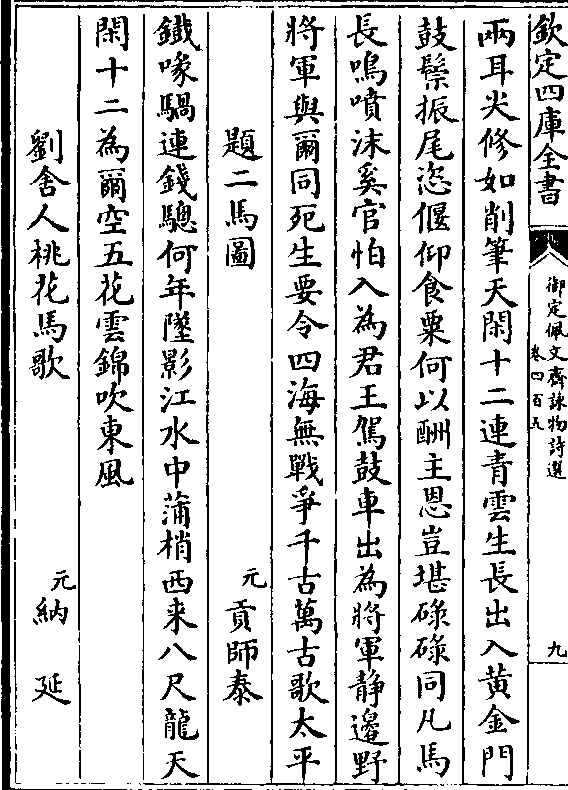 欽定四庫全書
御定佩文齋詠物詩選
卷四百五
九
兩耳尖修如削筆天閑十二連青雲生長出入黃金門
鼓鬃振尾恣偃仰食粟何以酬主恩豈堪碌碌同凡馬
長鳴噴沫奚官怕入為君王駕鼓車出為將軍靜邊野
將軍與爾同死生要令四海無戰爭千古萬古歌太平
題二馬圖 元 貢師泰
鐵喙騧連錢驄何年墜影江水中蒲梢西来八尺龍天
閑十二為爾空五花雲錦吹東風
劉舍人桃花馬歌 元 納 延